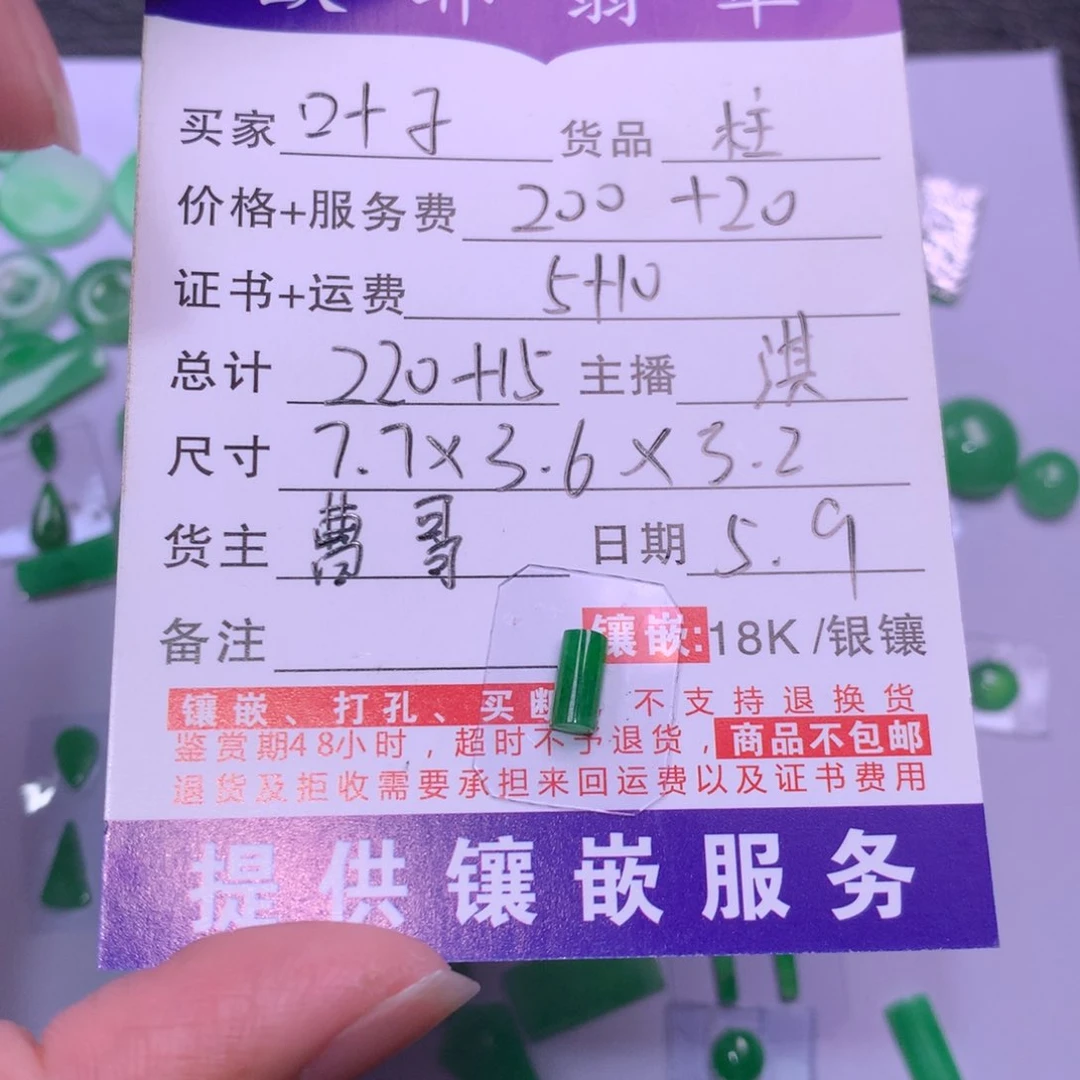 买家 叶子 货品 柱
价格+服务费 200 +20
证书+运费 5+10
总计 220+15 主播 淇
尺寸 7.7×3.6×3.2
货主 曹哥 日期 5.9
备注 镶嵌:18K/银镶
镶嵌、打孔、买断 不支持退换货
鉴赏期48小时，超时不予退货，商品不包邮
退货及拒收需要承担来回运费以及证书费用
提供镶嵌服务